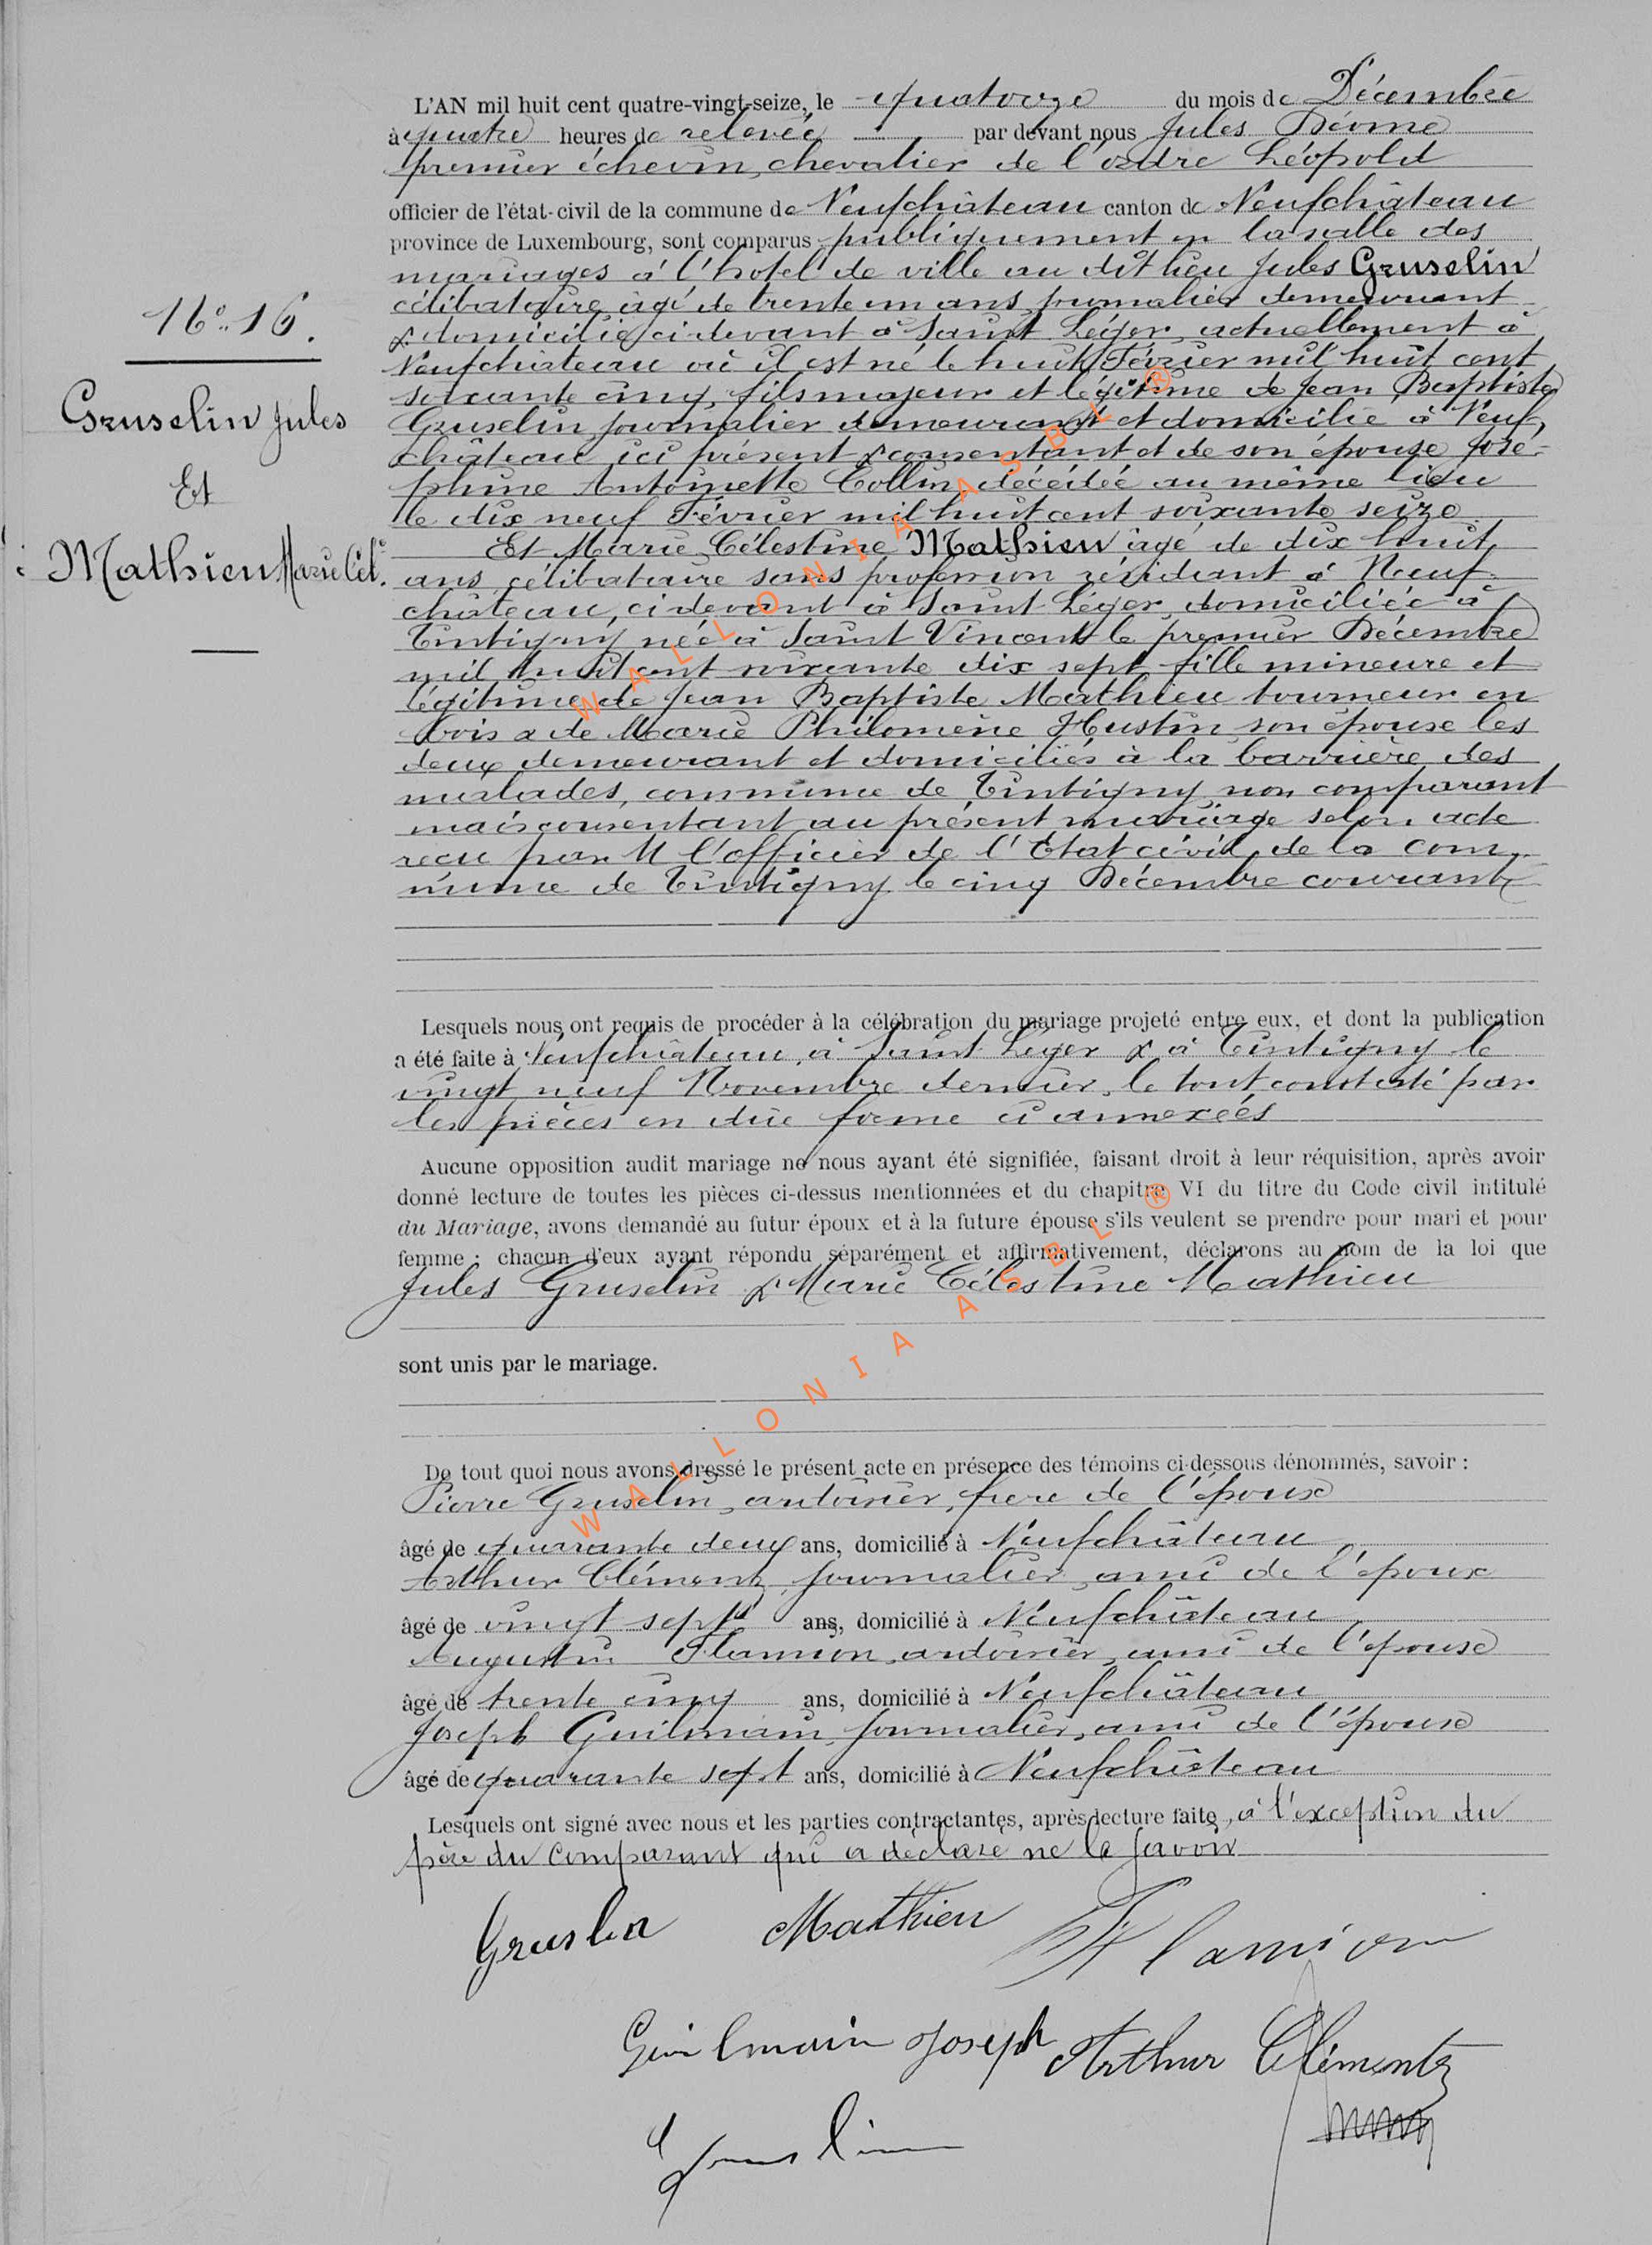 L'AN mil huit cent quatre-vingt-seize, le quatorze du mois de Décembre
à quatre heures de relevée par devant nous Jules Déome
premier échevin, chevalier de l'ordre Léopold
officier de l'état-civil de la commune de Neufchâteau canton de Neufchâteau
province de Luxembourg, sont comparus publiquement en la salle des
mariages à l'hotel de ville au dit lieu Jules Gruselin
célibataire âgé de trente un ans journalier demeurant
& domicilié ci devant à Saint Léger, actuellement à
Neufchâteau où il est né le huit Février mil huit cent
soixante cinq, fils majeur et légitime de Jean Baptiste
Gruselin journalier demeurant et domicilié à Neuf
château ici présent & consentant et de son épouse José-
phine Antoinette Collin décédée au même lieu
le dix neuf Février mil huit cent soixante seize
Et Marie Célestine Mathieu âgé de dix huit
ans, célibataire sans profession résidant à Neuf
château, ci devant à Saint Léger, domiciliée à
Tintigny, née à Saint Vincent le premier Décembre
mil huit cent soixante dix sept fille mineure et
légitime de Jean Baptiste Mathieu tourneur en
bois & de Marie Philomène Hustin son épouse les
deux demeurant et domiciliés à la barrière des
malades, commune de Tintigny non comparant
mais consentant au présent mariage selon acte
recu par M l'officier de l'Etat civil de la com
mune de Tintigny le cinq Décembre courant
No. 16.
Gruselin Jules
Et
Mathieu Marie Cél.
Lesquels nous ont requis de procéder à la célébration du mariage projeté entre eux, et dont la publication
a été faite à Neufchâteau, à Saint Léger & à Tintigny le
vingt neuf Novembre dernier, le tout constaté par
les pièces en due forme ci annexées
Aucune opposition audit mariage ne nous ayant été signifiée, faisant droit à leur réquisition, après avoir
donné lecture de toutes les pièces ci-dessus mentionnées et du chapitre VI du titre du Code civil intitulé
du Mariage, avons demandé au futur époux et à la future épouse s'ils veulent se prendre pour mari et pour
femme ; chacun d'eux ayant répondu séparément et affirmativement, déclarons au nom de la loi que
Jules Gruselin & Marie Célestine Mathieu
sont unis par le mariage.
De tout quoi nous avons dressé le présent acte en présence des témoins ci-dessous dénommés, savoir :
Pierre Gruselin, ardoisier, frere de l'époux
âgé de quarante deux ans, domicilié à Neufchâteau
Arthur Clémentz, journalier, ami de l'époux
âgé de vingt sept ans, domicilié à Neufchâteau
Augustin Flamion, ardoisier, ami de l'épouse
âgé de trente cinq ans, domicilié à Neufchâteau
Joseph Guilmain, journalier, ami de l'épouse
âgé de quarante sept ans, domicilié à Neufchâteau
Lesquels ont signé avec nous et les parties contractantes, après lecture faite, à l'exception du
père du comparant qui a déclaré ne le savoir
Gruslin Mathieu Flamion
Guilmain Joseph Arthur Clémentz
Gruslin
WALLONIA ASBL ®
WALLONIA ASBL ®